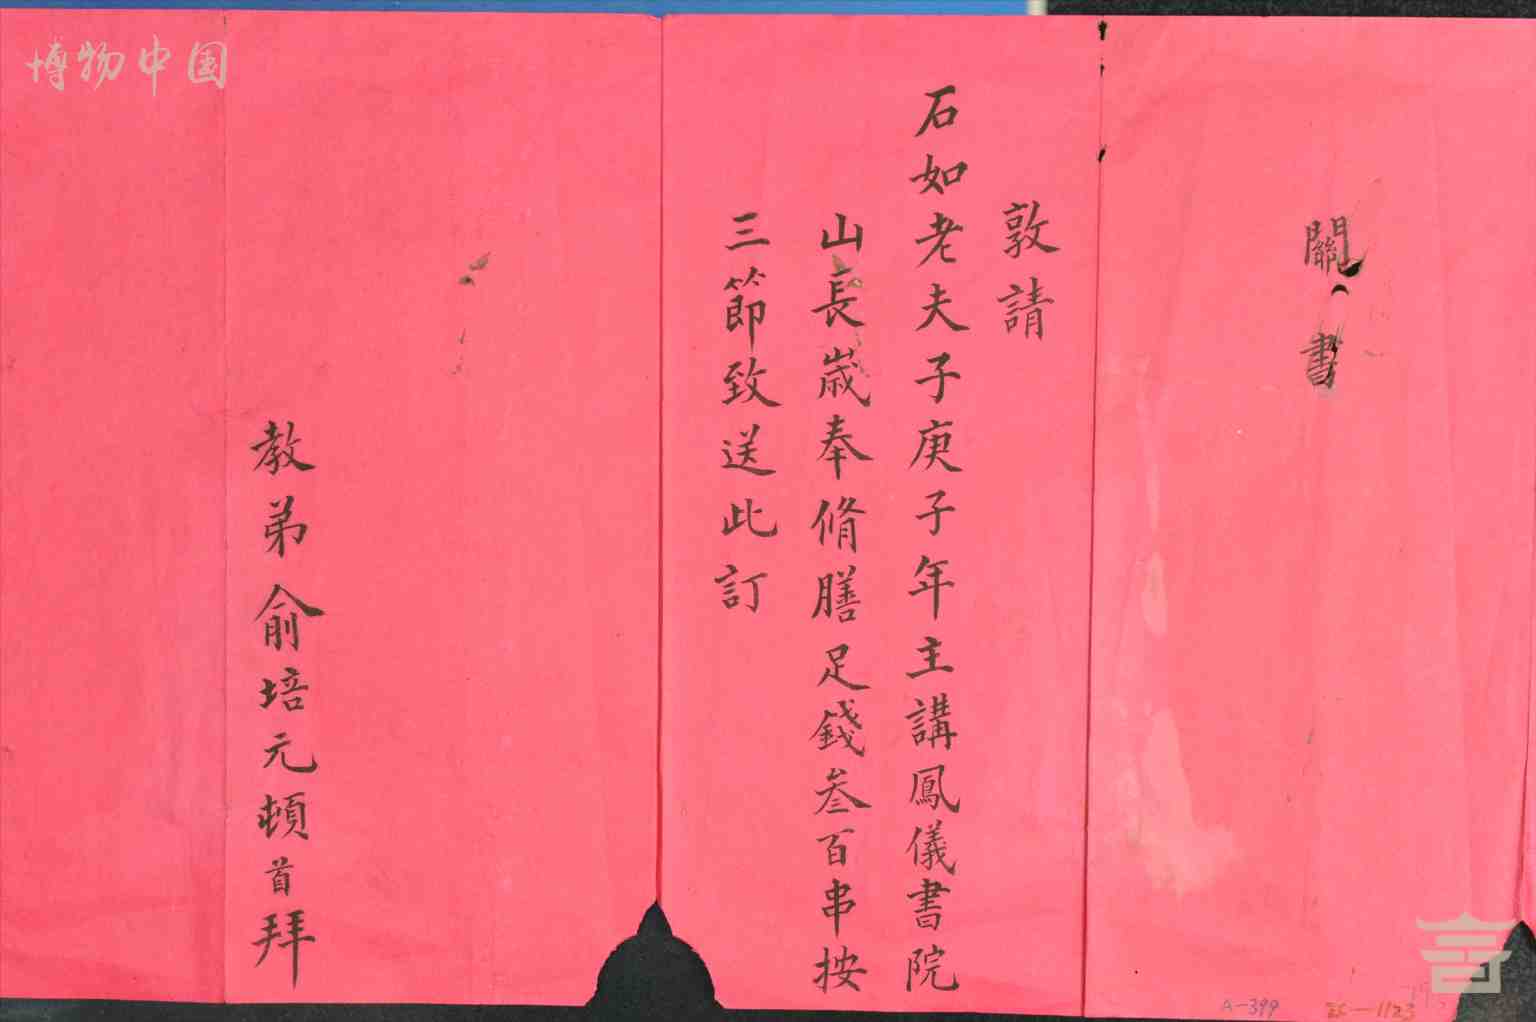 關書
敦請
石如老夫子庚子年主講鳳儀書院
山長歲奉脩膳足錢叁百串按
三節致送此訂
教弟俞培元頓首拜
博物中国
A-399